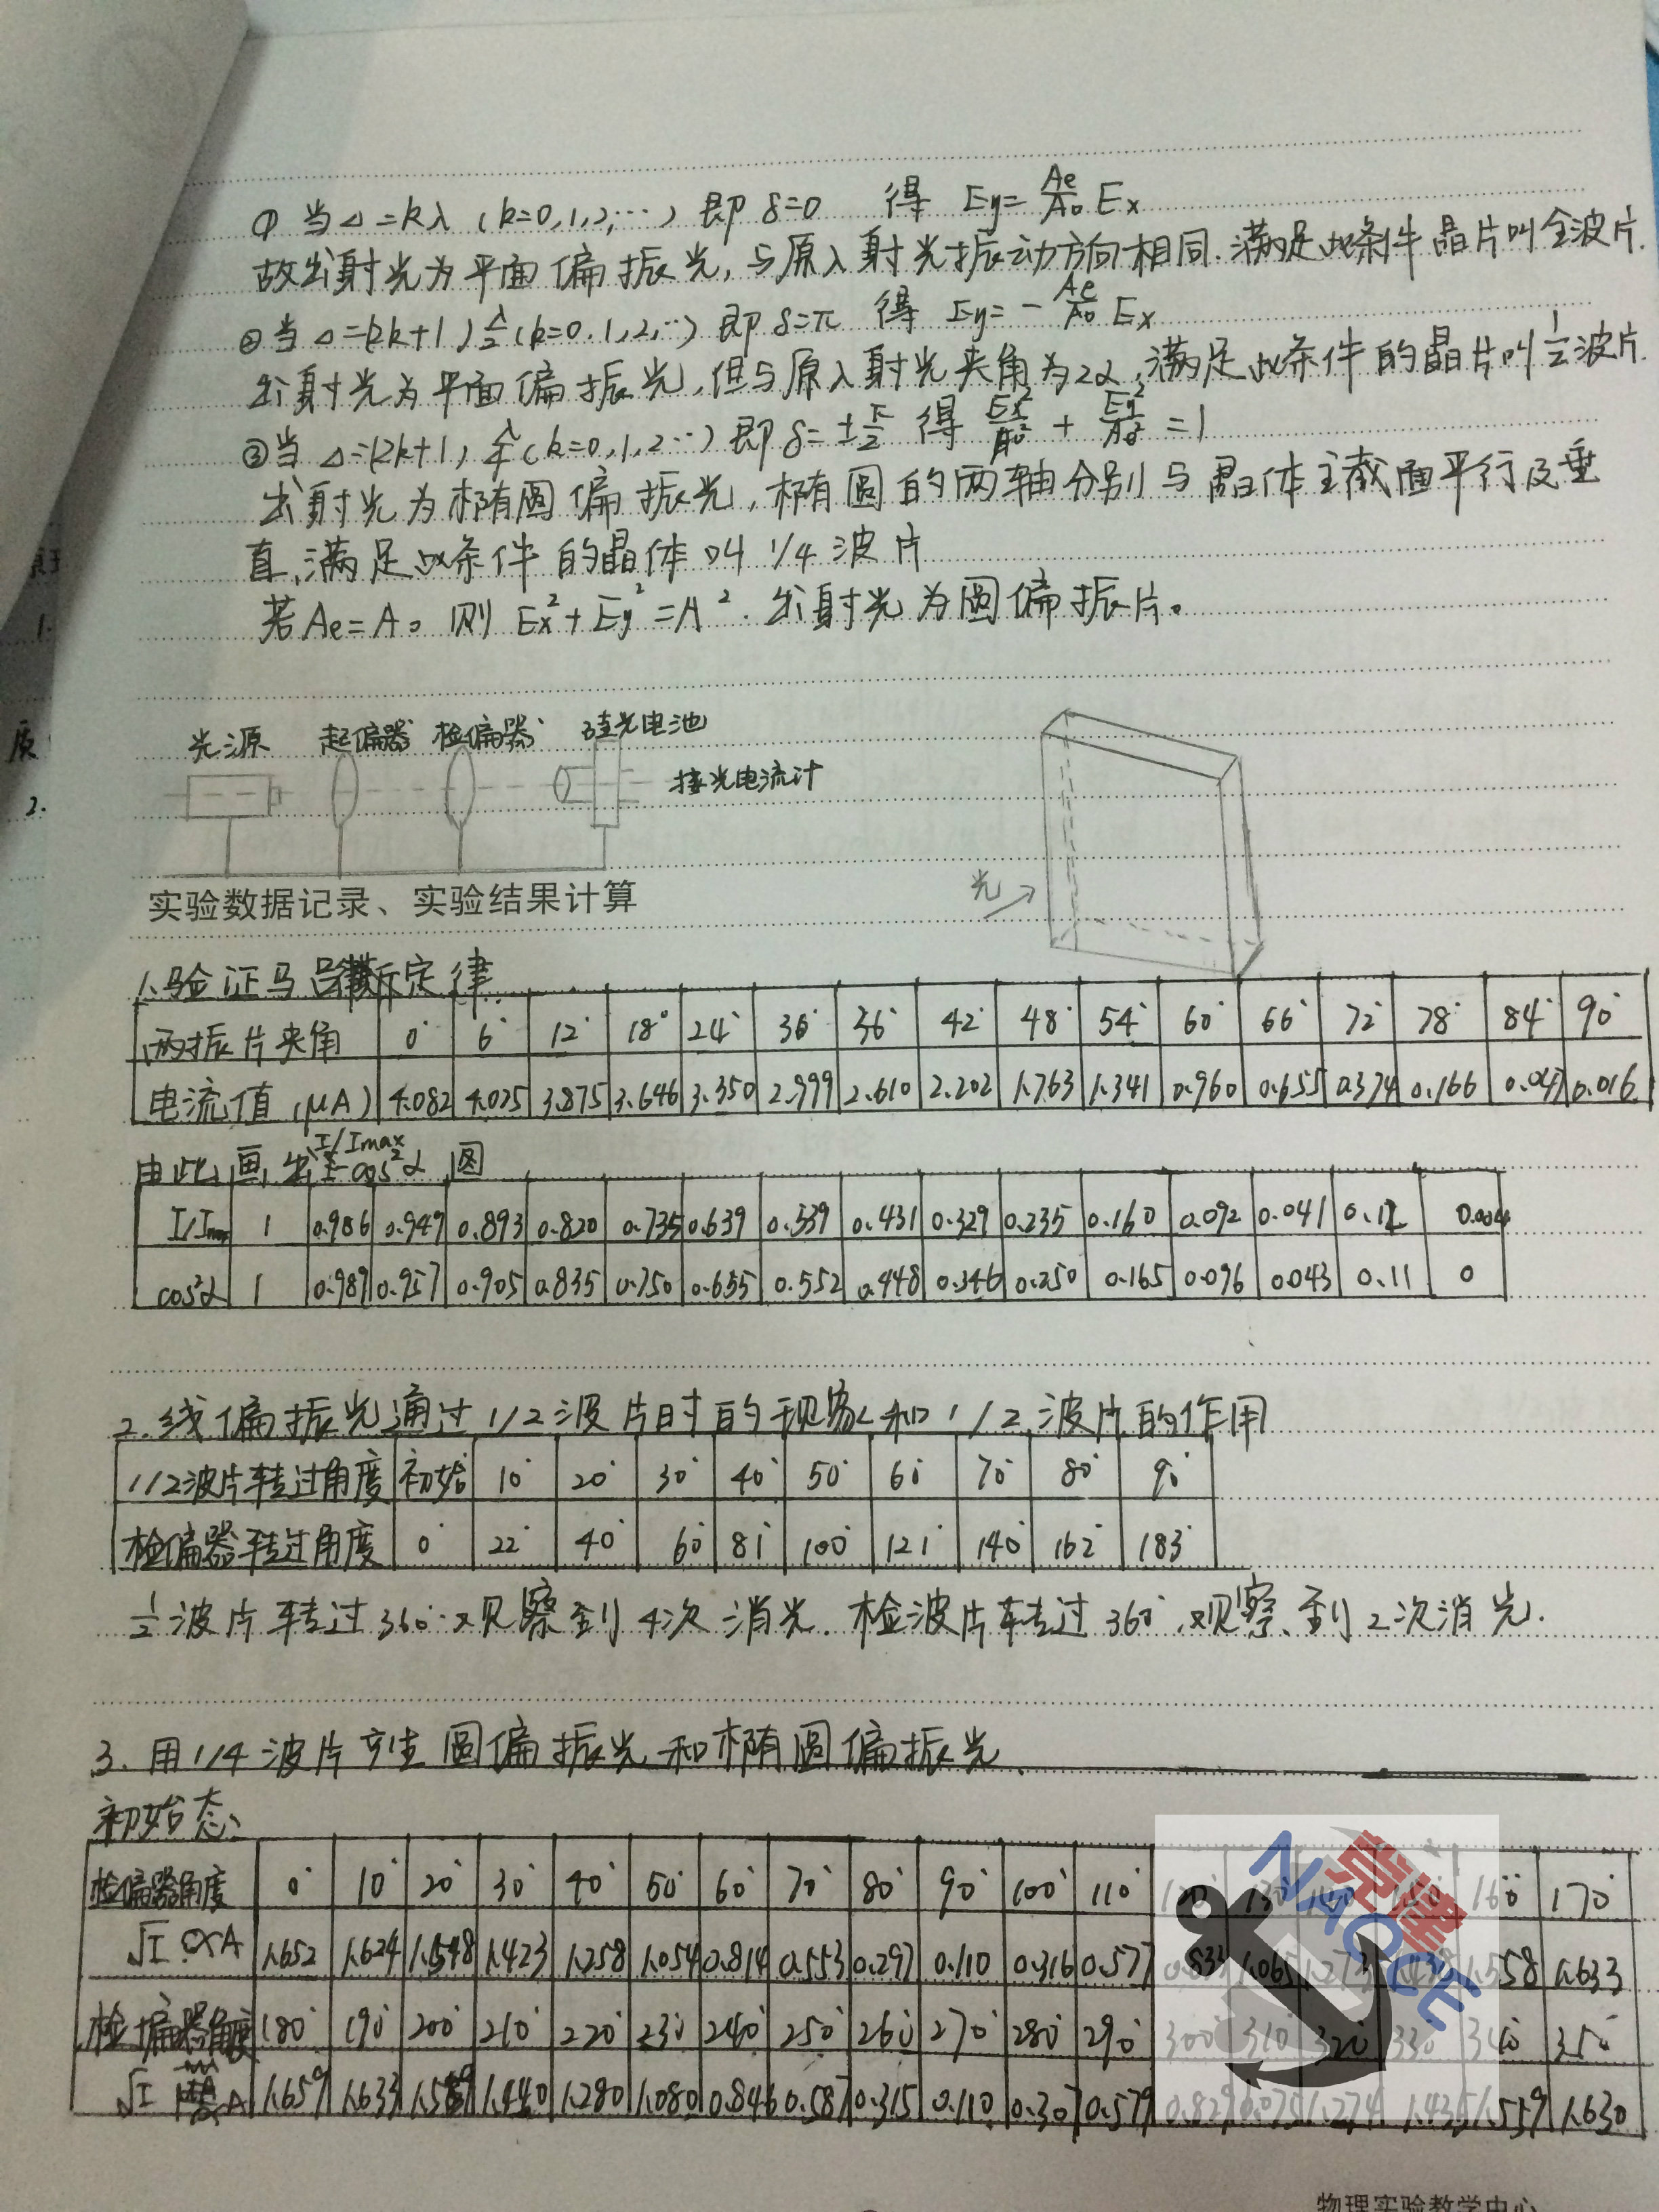 ① 当△=kλ (k=0,1,2,…) 即 δ=0 得 Ey=Ae/Ao Ex
故出射光为平面偏振光,与原入射光振动方向相同.满足此条件晶片叫全波片.
②当 △=(2k+1)λ/2 (k=0.1,2,…) 即 δ=π 得 Ey=-Ae/Ao Ex
出射光为平面偏振光,但与原入射光夹角为2α,满足此条件的晶片叫1/2波片.
③当 △=(2k+1)λ/4 (k=0,1,2…) 即 δ=±π/2 得 Ex²/Ao² + Ey²/Ae² =1
出射光为椭圆偏振光,椭圆的两轴分别与晶体主截面平行及垂
直,满足此条件的晶体叫 1/4 波片
若Ae=Ao 则 Ex²+Ey²=A². 出射光为圆偏振片。
光源 起偏器 检偏器 硅光电池
接光电流计
光
实验数据记录、实验结果计算
1.验证马吕斯定律
两振片夹角 0° 6° 12° 18° 24° 30° 36° 42° 48° 54° 60° 66° 72° 78° 84° 90°
电流值(μA) 4.082 4.025 3.875 3.646 3.350 2.999 2.610 2.202 1.763 1.341 0.960 0.655 0.374 0.166 0.047 0.016
由此画出 I/Imax - cos²α 图
I/Imax 1 0.986 0.949 0.893 0.820 0.735 0.639 0.539 0.431 0.329 0.235 0.160 0.092 0.041 0.12 0.004
cos²α 1 0.989 0.957 0.905 0.835 0.750 0.655 0.552 0.448 0.346 0.250 0.165 0.096 0.043 0.11 0
2.线偏振光通过1/2波片时的现象和1/2波片的作用
1/2波片转过角度 初始 10° 20° 30° 40° 50° 60° 70° 80° 90°
检偏器转过角度 0° 22° 40° 60° 81° 100° 121° 140° 162° 183°
1/2波片转过360°观察到4次消光. 检波片转过360°观察到2次消光.
3.用1/4波片产生圆偏振光和椭圆偏振光.
初始态:
检偏器角度 0° 10° 20° 30° 40° 50° 60° 70° 80° 90° 100° 110° 120° 130° 140° 150° 160° 170°
√I ∝A 1.652 1.624 1.548 1.423 1.258 1.054 0.814 0.553 0.297 0.110 0.316 0.577 0.833 1.065 1.273 1.558 1.633
检偏器角度 180° 190° 200° 210° 220° 230° 240° 250° 260° 270° 280° 290° 300° 310° 320° 330° 340° 350°
√I A 1.659 1.633 1.440 1.280 1.080 0.846 0.587 0.315 0.110 0.307 0.579 0.829 1.274 1.435 1.559 1.630
NAOCE
物理实验教学中心